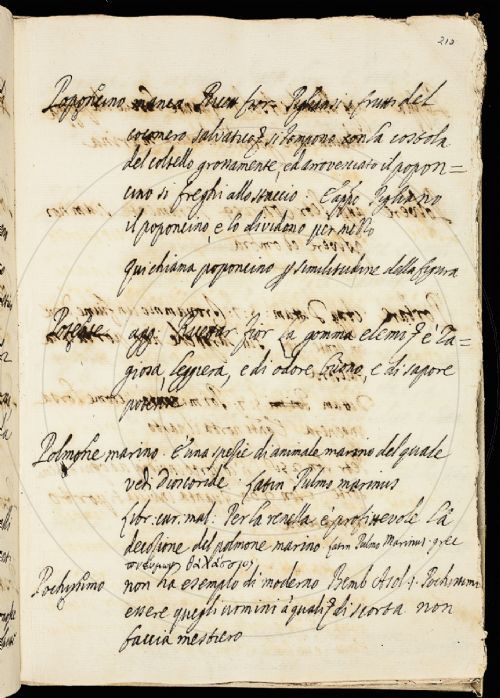 210
Poponcino Ricett fior Piglinsi i frutti del
cocomero salvatico si tompono con la costola
del coltello grossamente, ed arrovesciato il popon=
cino si freghi allo staccio : E appo Pigliano
il poponcino, e lo dividono per mezzo
qui chiama poponcino similitudine della figura
Potente agg: Ricettar fior la gomma elemi è ra=
giosa, leggiera, e di odore buono, e di sapore
potente
Polmone marino è una spezie di animale marino del quale
vedi Dioscoride latin Pulmo marinus
libr: cur: mal: Per la renella è profittevole la
decozione del polmone marino latin Pulmo Marinus grec
θαλάσσιος
Pochissimo non ha esempio di moderno Bemb Asol 1. Pochissimi
essere quegli uomini a quali di scorta non
faccia mestiero